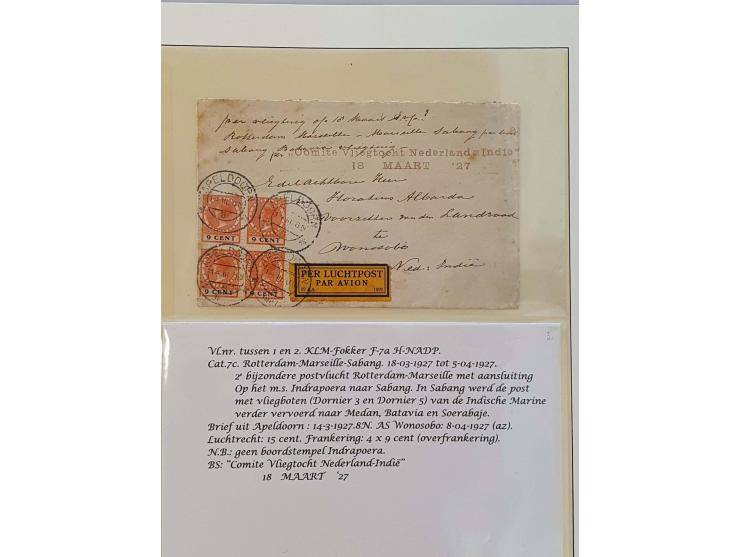 per vliegtuig op 18 Maart
Rotterdam Marseille – Marseille Sabang per boot
Sabang Batavia vliegtuig –
"Comite Vliegtocht Nederland-Indië"
18 MAART '27
Edelachtbare Heer
Horatius Albarda
Voorzitter van den Landraad
te
Wonosobo
Ned: Indië
APELDOORN
9 CENT 9 CENT
9 CENT 9 CENT
PER LUCHTPOST
PAR AVION
Vl.nr. tussen 1 en 2. KLM-Fokker F-7a H-NADP.
Cat.7c. Rotterdam-Marseille-Sabang. 18-03-1927 tot 5-04-1927.
2e bijzondere postvlucht Rotterdam-Marseille met aansluiting
Op het m.s. Indrapoera naar Sabang. In Sabang werd de post
met vliegboten (Dornier 3 en Dornier 5) van de Indische Marine
verder vervoerd naar Medan, Batavia en Soerabaje.
Brief uit Apeldoorn : 14-3-1927.8N. AS Wonosobo: 8-04-1927 (az).
Luchtrecht: 15 cent. Frankering: 4 x 9 cent (overfrankering).
N.B.: geen boordstempel Indrapoera.
BS: "Comite Vliegtocht Nederland-Indië"
18 MAART '27